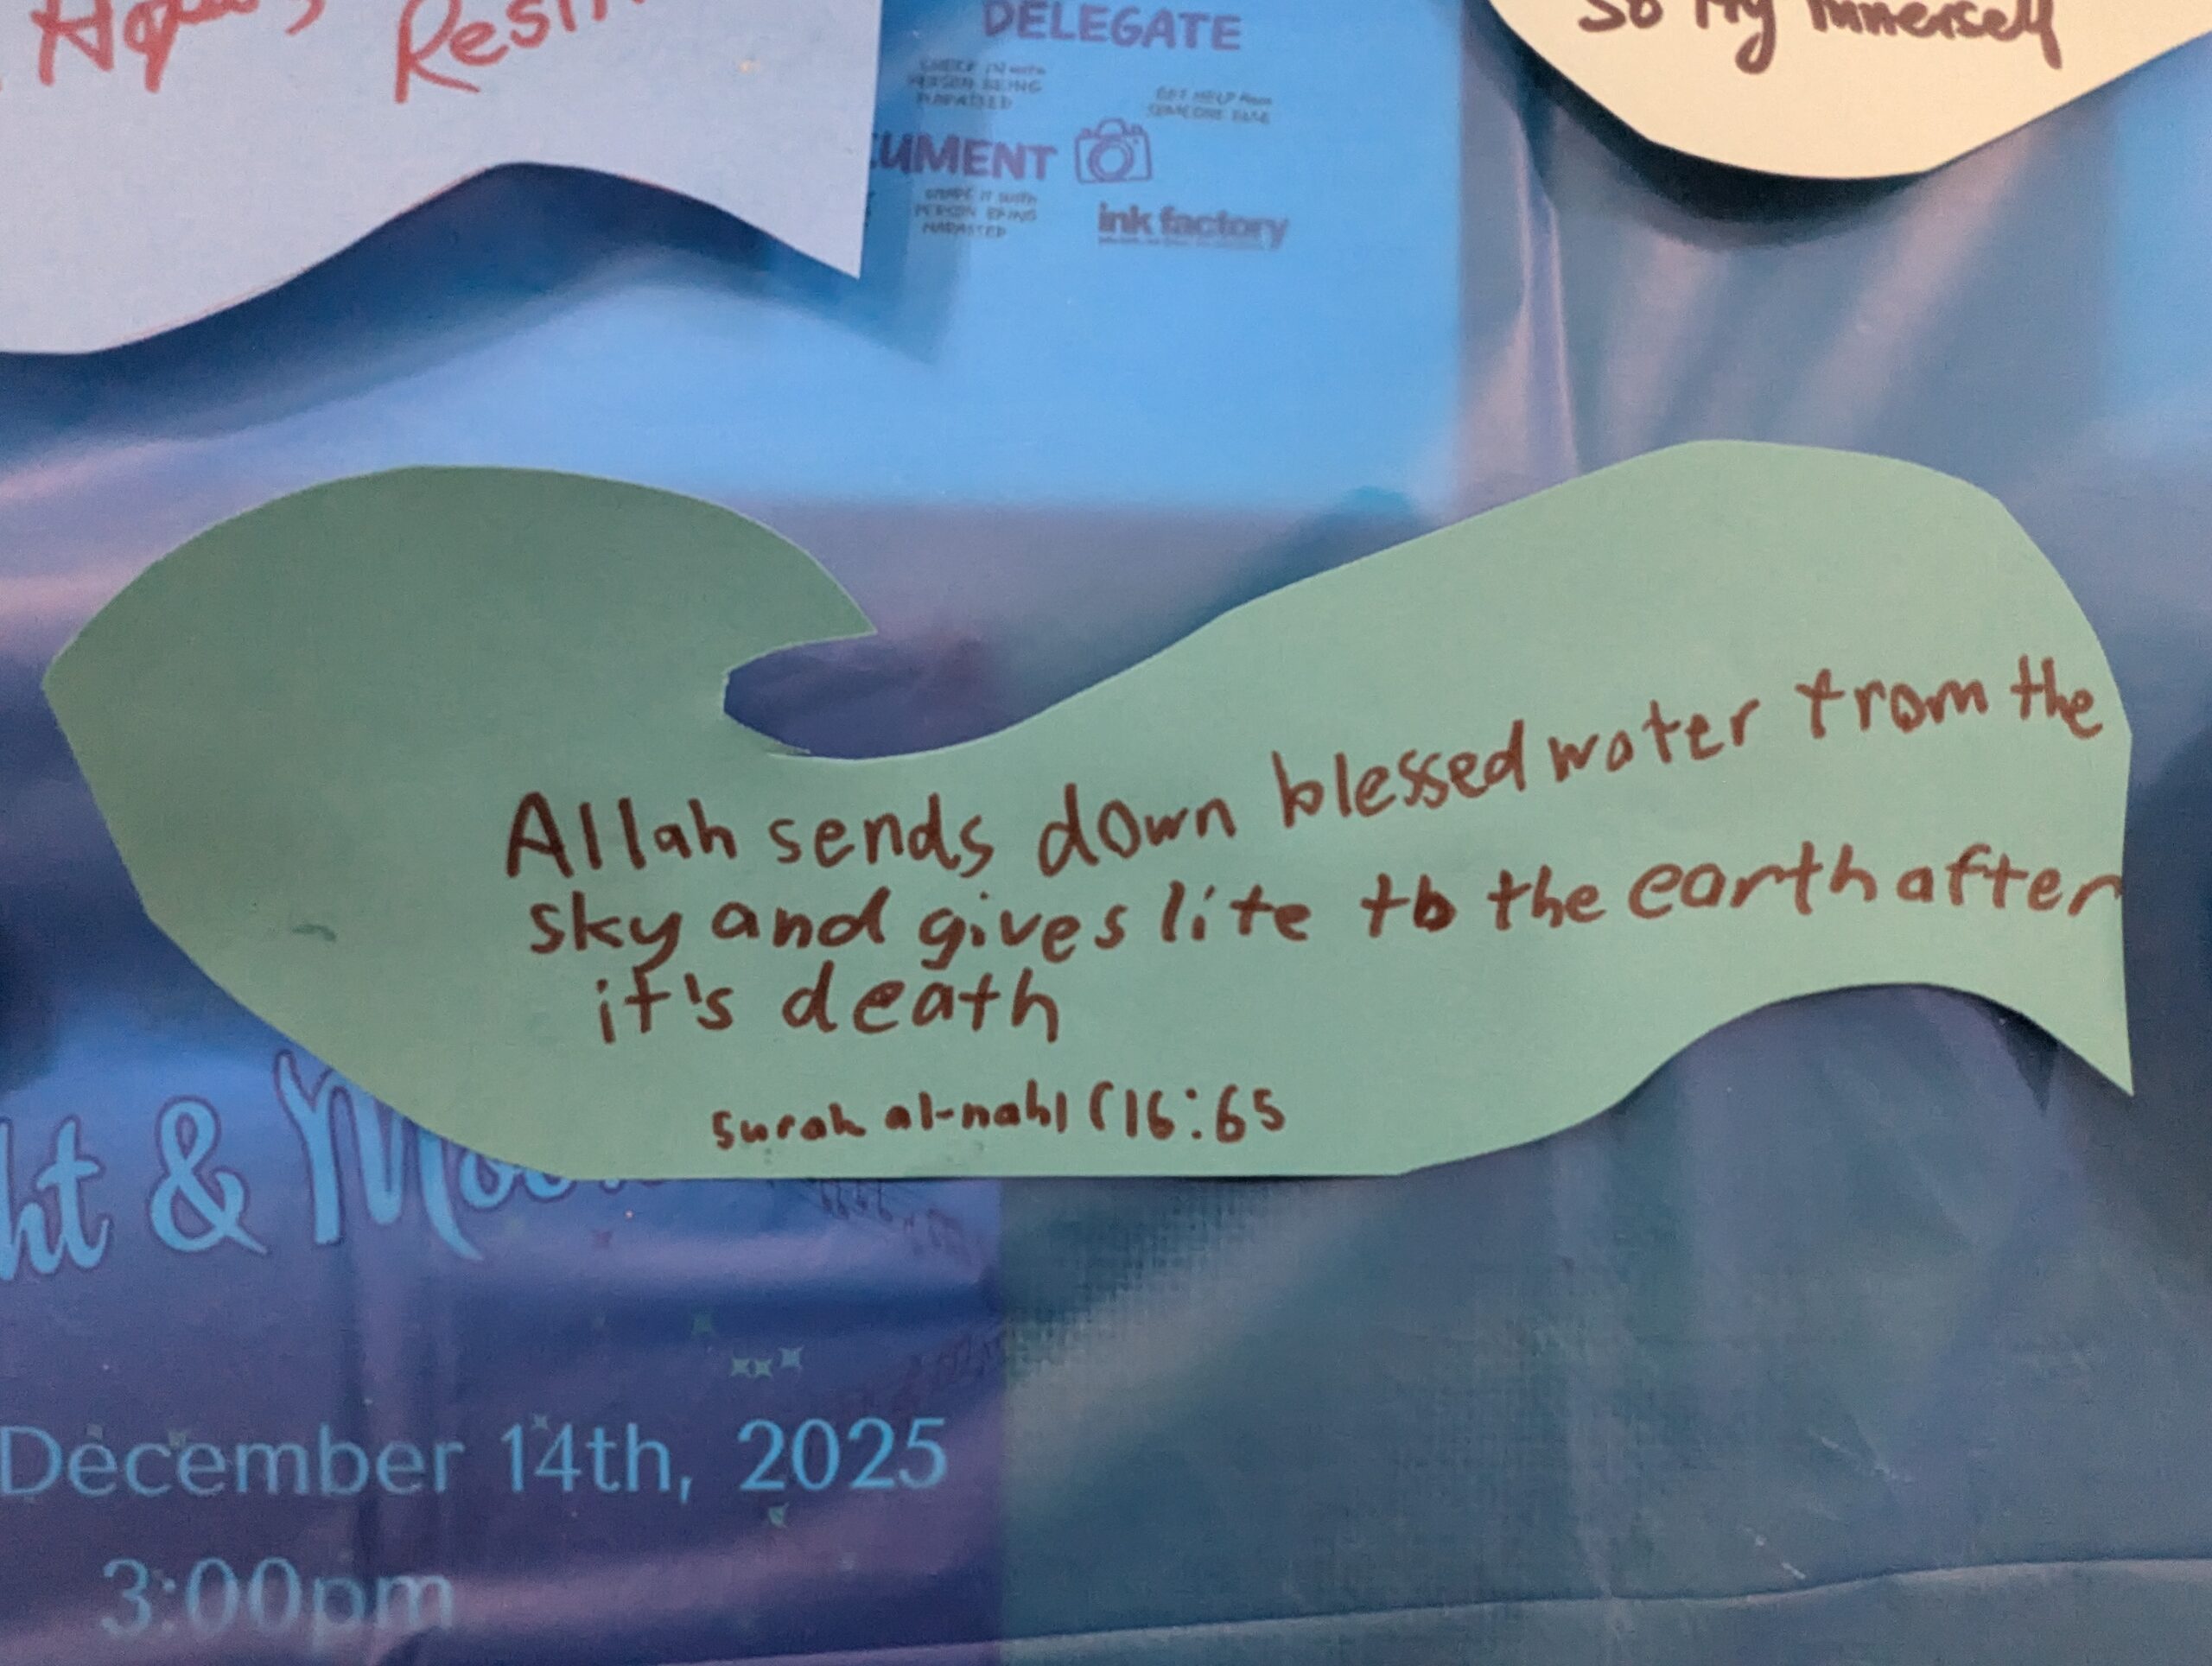 Resi
DELEGATE
CHECK IN with
PERSON BEING
HARASSED
GET HELP from
SOMEONE ELSE
UMENT
SHARE IT with
PERSON BEING
HARASSED
ink factory
so my innerself
Allah sends down blessed water from the
sky and gives life to the earth after
it's death
surah al-nahl (16:65
ht & Moo
December 14th, 2025
3:00pm